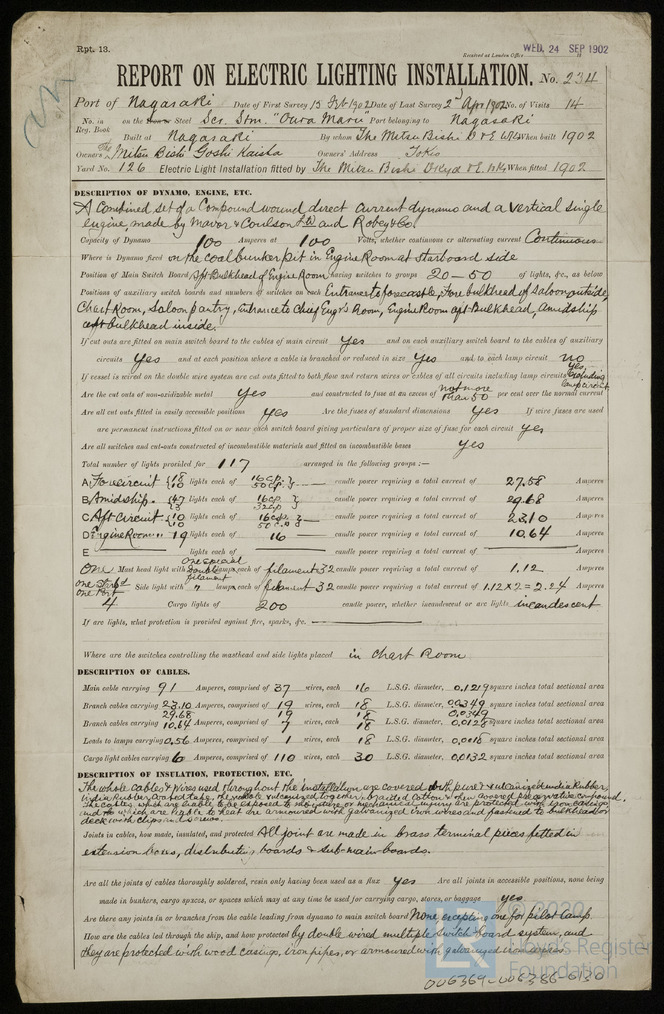 Rpt. 13.
Received at London Office WED. 24 SEP 1902
REPORT ON ELECTRIC LIGHTING INSTALLATION. No. 234
Port of Nagasaki Date of First Survey 13 Feb 1902 Date of Last Survey 2nd Apr 1902 No. of Visits 14
No. in Reg. Book on the Iron or Steel Scr. Stm. "Oura Maru" Port belonging to Nagasaki
Built at Nagasaki By whom The Mitsu Bishi D & E Wks When built 1902
Owners The Mitsu Bishi Goshi Kaisha Owners' Address Tokio
Yard No. 126 Electric Light Installation fitted by The Mitsu Bishi Dkyd & E. Wks When fitted 1902
DESCRIPTION OF DYNAMO, ENGINE, ETC.
A Combined set of a Compound wound direct current dynamo and a vertical single
engine, made by Mavor & Coulson Ld and Robey & Co.
Capacity of Dynamo 100 Amperes at 100 Volts, whether continuous or alternating current Continuous
Where is Dynamo fixed on the coal bunker pit in Engine Room at starboard side
Position of Main Switch Board Aft Bulkhead of Engine Room having switches to groups 20-50 of lights, &c., as below
Positions of auxiliary switch boards and numbers of switches on each Entrance to forecastle, Fore bulkhead of saloon outside,
Chart Room, Saloon pantry, Entrance to Chief Engr's Room, Engine Room aft Bulkhead, Amidship
aft bulkhead inside.
If cut outs are fitted on main switch board to the cables of main circuit yes and on each auxiliary switch board to the cables of auxiliary
circuits yes and at each position where a cable is branched or reduced in size yes and to each lamp circuit no
If vessel is wired on the double wire system are cut outs fitted to both flow and return wires or cables of all circuits including lamp circuits yes, excluding lamp circuit
Are the cut outs of non-oxidizable metal yes and constructed to fuse at an excess of not more than 50 per cent over the normal current
Are all cut outs fitted in easily accessible positions yes Are the fuses of standard dimensions yes If wire fuses are used
are permanent instructions fitted on or near each switch board giving particulars of proper size of fuse for each circuit yes
Are all switches and cut-outs constructed of incombustible materials and fitted on incombustible bases yes
Total number of lights provided for 117 arranged in the following groups :—
A Fore circuit {18 10 lights each of 16 c.p. 50 c.p. } candle power requiring a total current of 27.58 Amperes
B Amidship {47 lights each of 16 c.p. 32 c.p. } candle power requiring a total current of 29.68 Amperes
C Aft Circuit {10 10 lights each of 16 c.p. 50 c.p. } candle power requiring a total current of 23.10 Amperes
D Engine Room 19 lights each of 16 candle power requiring a total current of 10.64 Amperes
E lights each of candle power requiring a total current of Amperes
One Mast head light with one special double filament lamps each of filament 32 candle power requiring a total current of 1.12 Amperes
one Starbd one Port Side light with " lamps each of filament 32 candle power requiring a total current of 1.12 x 2 = 2.24 Amperes
4 Cargo lights of 200 candle power, whether incandescent or arc lights incandescent
If arc lights, what protection is provided against fire, sparks, &c.
Where are the switches controlling the masthead and side lights placed in Chart Room
DESCRIPTION OF CABLES.
Main cable carrying 91 Amperes, comprised of 37 wires, each 16 L.S.G. diameter, 0.1219 square inches total sectional area
Branch cables carrying 23.10 Amperes, comprised of 19 wires, each 18 L.S.G. diameter, 0.0349 square inches total sectional area
29.68 19 18 0.0349
Branch cables carrying 10.64 Amperes, comprised of 7 wires, each 18 L.S.G. diameter, 0.0128 square inches total sectional area
Leads to lamps carrying 0.56 Amperes, comprised of 1 wires, each 18 L.S.G. diameter, 0.0018 square inches total sectional area
Cargo light cables carrying 6 Amperes, comprised of 110 wires, each 30 L.S.G. diameter, 0.0132 square inches total sectional area
DESCRIPTION OF INSULATION, PROTECTION, ETC.
The whole cables & wires used throughout the installation are covered with pure & vulcanized india Rubber,
India Rubber coated tape, the whole vulcanized together, braided cotton, then covered preservative compound.
The cables which are liable to be exposed to moisture or mechanical injury are protected with iron casings,
and to which are liable to heat are armoured with galvanized iron wires and fastened to bulkhead or
deck with clips and screws.
Joints in cables, how made, insulated, and protected All joint are made in brass terminal pieces fitted in
extension boxes, distributing boards & sub-main boards.
Are all the joints of cables thoroughly soldered, resin only having been used as a flux yes Are all joints in accessible positions, none being
made in bunkers, cargo spaces, or spaces which may at any time be used for carrying cargo, stores, or baggage yes
Are there any joints in or branches from the cable leading from dynamo to main switch board None, excepting one for pilot lamp
How are the cables led through the ship, and how protected by double wired multiple switch board system, and
they are protected with wood casings, iron pipes, or armoured with galvanized iron wires
© 2020
Lloyd's Register
Foundation
006369-006386-0130